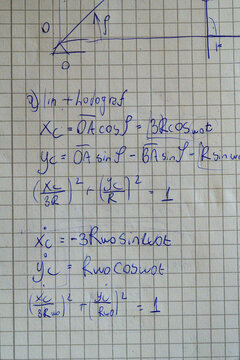 O
φ
r
O
a) lin + hodograf
x_C = \overline{OA} cos φ = 3R cos ω₀t
y_C = \overline{OA} sin φ - \overline{BA} sin φ = R sin ω₀
(x_C/3R)² + (y_C/R)² = 1
ẋ_C = -3Rω₀ sin ω₀t
ẏ_C = Rω₀ cos ω₀t
(ẋ_C/3Rω₀)² + (ẏ_C/Rω₀)² = 1